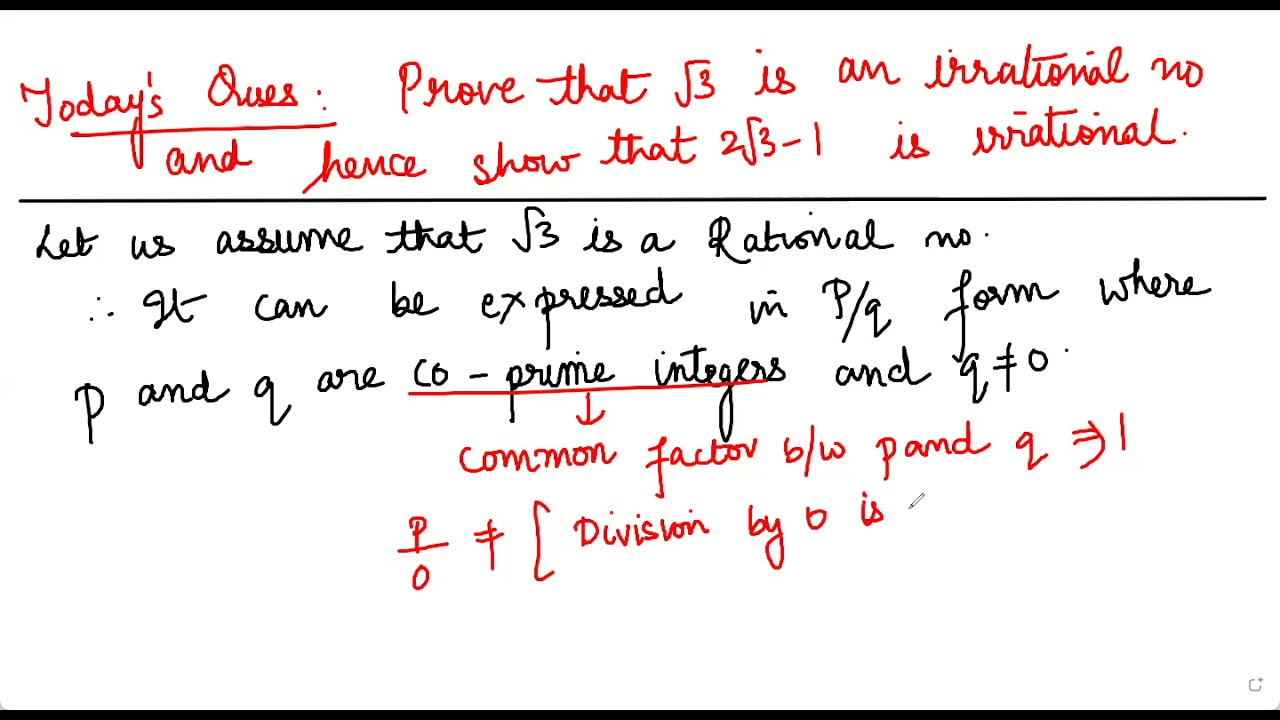 Today's Ques: Prove that √3 is an irrational no
and hence show that 2√3-1 is irrational.
Let us assume that √3 is a Rational no.
∴ It can be expressed in P/q form where
p and q are co-prime integers and q≠0.
↓
common factor b/w p and q ⇒ 1
P/0 ≠ [Division by 0 is